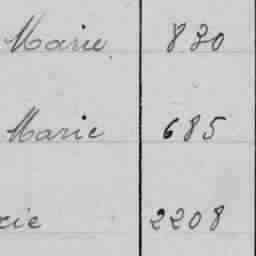 Marie 830
Marie 685
rie 2208